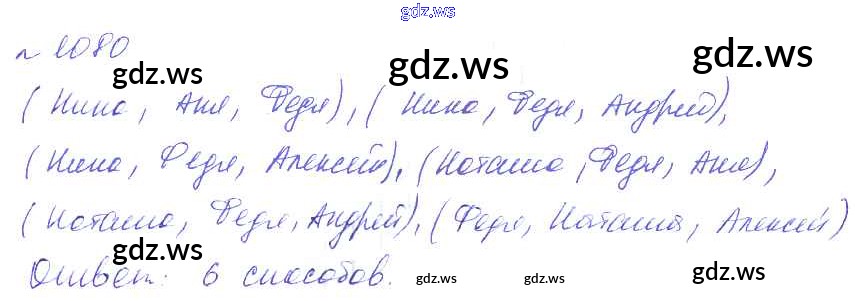 gdz.ws
№ 1080
gdz.ws gdz.ws gdz.ws
(Нина, Аня, Федя), (Нина, Федя, Андрей),
(Нина, Федя, Алексей), (Наташа, Федя, Аня),
(Наташа, Федя, Андрей), (Федя, Наташа, Алексей)
Ответ: 6 способов.
gdz.ws gdz.ws gdz.ws